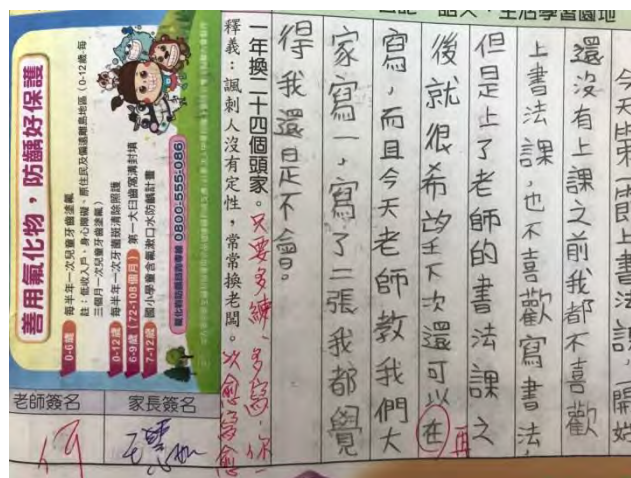 日記、語文、生活學習園地
今天第一節上書法課,一開始
還沒有上課之前我都不喜歡
上書法課,也不喜歡寫書法,
但是上了老師的書法課之
後就很希望下次還可以在
再
寫,而且今天老師教我們大
家寫一,寫了二張我都覺
得我還是不會。
一年換二十四個頭家。
釋義:諷刺人沒有定性,常常換老闆。
只要多練、多寫,你
以愈寫愈
善用氟化物,防齲好保護
0-6歲 每半年一次兒童牙齒塗氟
註:低收入戶、身心障礙、原住民及偏遠離島地區(0-12歲每
三個月一次兒童牙齒塗氟)
0-12歲 每半年一次牙菌斑清除照護
6-9歲(72-108個月) 第一大臼齒窩溝封填
7-12歲 國小學童含氟漱口水防齲計畫
0800-555-086
老師簽名
家長簽名
何